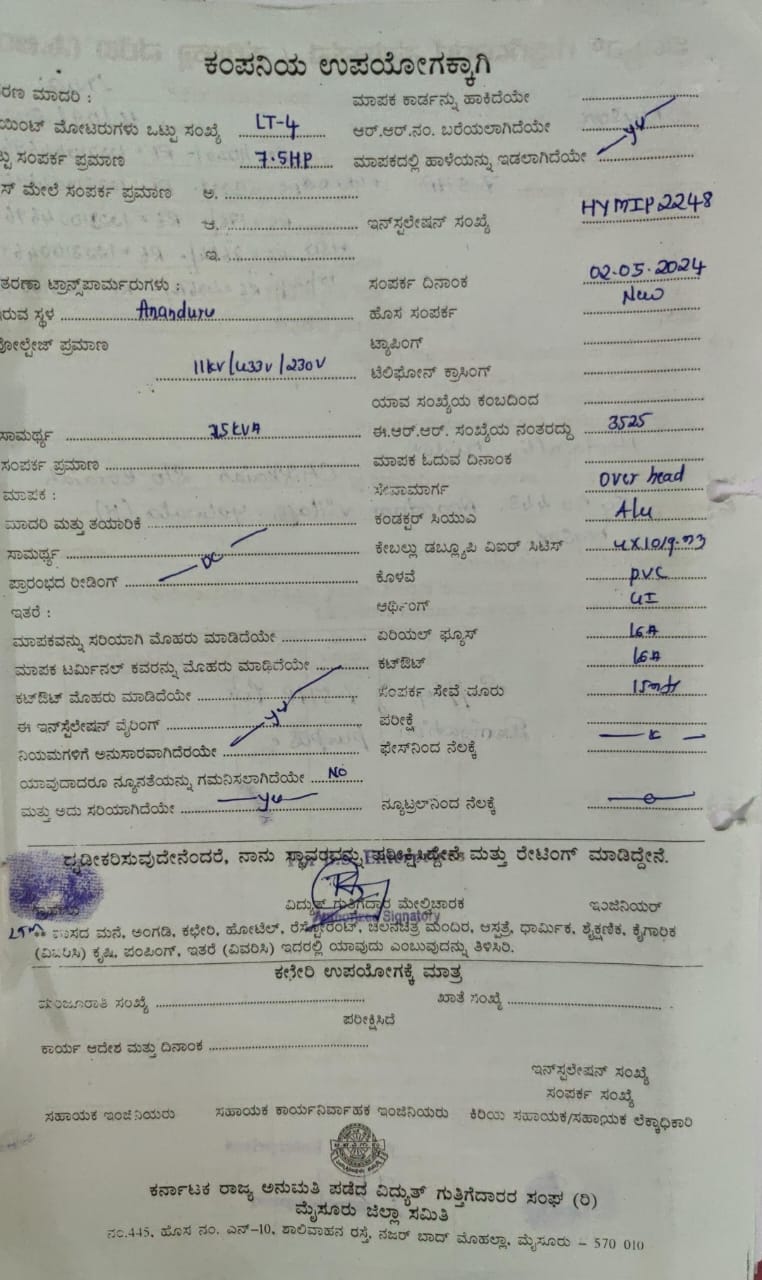 ಕಂಪನಿಯ ಉಪಯೋಗಕ್ಕಾಗಿ
ರಣ ಮಾದರಿ : ಮಾಪಕ ಕಾರ್ಡನ್ನು ಹಾಕಿದೆಯೇ
ಯಿಂಟ್ ಮೋಟರುಗಳು ಒಟ್ಟು ಸಂಖ್ಯೆ LT-4 ಆರ್.ಆರ್.ನಂ. ಬರೆಯಲಾಗಿದೆಯೇ
ಟ್ಟು ಸಂಪರ್ಕ ಪ್ರಮಾಣ 7.5HP ಮಾಪಕದಲ್ಲಿ ಹಾಳೆಯನ್ನು ಇಡಲಾಗಿದೆಯೇ
ಸ್ ಮೇಲೆ ಸಂಪರ್ಕ ಪ್ರಮಾಣ ಅ.
ಆ. ಇನ್‌ಸ್ಟಲೇಷನ್ ಸಂಖ್ಯೆ HYMIP2248
ಇ.
ತರಣಾ ಟ್ರಾನ್ಸ್‌ಪಾರ್ಮರುಗಳು : ಸಂಪರ್ಕ ದಿನಾಂಕ 02.05.2024
ರುವ ಸ್ಥಳ Ananduru ಹೊಸ ಸಂಪರ್ಕ New
ವೋಲ್ಟೇಜ್ ಪ್ರಮಾಣ 11kv/433v/230v ಟ್ಯಾಪಿಂಗ್
ಟೆಲಿಫೋನ್ ಕ್ರಾಸಿಂಗ್
ಯಾವ ಸಂಖ್ಯೆಯ ಕಂಬದಿಂದ
ಸಾಮರ್ಥ್ಯ 25kVA ಈ.ಆರ್.ಆರ್. ಸಂಖ್ಯೆಯ ನಂತರದ್ದು 3525
ಸಂಪರ್ಕ ಪ್ರಮಾಣ ಮಾಪಕ ಓದುವ ದಿನಾಂಕ
ಮಾಪಕ : ಸೇವಾಮಾರ್ಗ Over head
ಮಾದರಿ ಮತ್ತು ತಯಾರಿಕೆ ಕಂಡಕ್ಟರ್ ಸಿಯುಎ Alu
ಸಾಮರ್ಥ್ಯ ಕೇಬಲ್ಲು ಡಬ್ಲ್ಯೂಪಿ ವಿಐರ್ ಸಿಟಿಸ್
ಪ್ರಾರಂಭದ ರೀಡಿಂಗ್ DC ಕೊಳವೆ PVC
ಇತರೆ : ಆರ್ಥಿಂಗ್ GI
ಮಾಪಕವನ್ನು ಸರಿಯಾಗಿ ಮೊಹರು ಮಾಡಿದೆಯೇ ಏರಿಯಲ್ ಫ್ಯೂಸ್ 16A
ಮಾಪಕ ಟರ್ಮಿನಲ್ ಕವರನ್ನು ಮೊಹರು ಮಾಡಿದೆಯೇ ಕಟ್‌ಔಟ್ 16A
ಕಟ್‌ಔಟ್ ಮೊಹರು ಮಾಡಿದೆಯೇ ಸಂಪರ್ಕ ಸೇವೆ ದೂರು
ಈ ಇನ್‌ಸ್ಟಲೇಷನ್ ವೈರಿಂಗ್ ಪರೀಕ್ಷೆ
ನಿಯಮಗಳಿಗೆ ಅನುಸಾರವಾಗಿದೆರಯೇ ಫೇಸ್‌ನಿಂದ ನೆಲಕ್ಕೆ
ಯಾವುದಾದರೂ ನ್ಯೂನತೆಯನ್ನು ಗಮನಿಸಲಾಗಿದೆಯೇ NO
ಮತ್ತು ಅದು ಸರಿಯಾಗಿದೆಯೇ ನ್ಯೂಟ್ರಲ್‌ನಿಂದ ನೆಲಕ್ಕೆ
ದೃಢೀಕರಿಸುವುದೇನೆಂದರೆ, ನಾನು ಸ್ಥಾವರವನ್ನು ಪರೀಕ್ಷಿಸಿದ್ದೇನೆ ಮತ್ತು ರೇಟಿಂಗ್ ಮಾಡಿದ್ದೇನೆ.
ವಿದ್ಯುತ್ ಗುತ್ತಿಗೆದಾರ ಮೇಲ್ವಿಚಾರಕ ಇಂಜಿನಿಯರ್
Authorised Signatory
ವಾಸದ ಮನೆ, ಅಂಗಡಿ, ಕಛೇರಿ, ಹೋಟೆಲ್, ರೆಸ್ಟೋರೆಂಟ್, ಚಲನಚಿತ್ರ ಮಂದಿರ, ಆಸ್ಪತ್ರೆ, ಧಾರ್ಮಿಕ, ಶೈಕ್ಷಣಿಕ, ಕೈಗಾರಿಕ
(ವಿವರಿಸಿ) ಕೃಷಿ, ಪಂಪಿಂಗ್, ಇತರೆ (ವಿವರಿಸಿ) ಇದರಲ್ಲಿ ಯಾವುದು ಎಂಬುವುದನ್ನು ತಿಳಿಸಿರಿ.
ಕಛೇರಿ ಉಪಯೋಗಕ್ಕೆ ಮಾತ್ರ
ಮಂಜೂರಾತಿ ಸಂಖ್ಯೆ ಖಾತೆ ಸಂಖ್ಯೆ
ಪರೀಕ್ಷಿಸಿದೆ
ಕಾರ್ಯ ಆದೇಶ ಮತ್ತು ದಿನಾಂಕ
ಇನ್‌ಸ್ಟಲೇಷನ್ ಸಂಖ್ಯೆ
ಸಂಪರ್ಕ ಸಂಖ್ಯೆ
ಸಹಾಯಕ ಇಂಜಿನಿಯರು ಸಹಾಯಕ ಕಾರ್ಯನಿರ್ವಾಹಕ ಇಂಜಿನಿಯರು ಕಿರಿಯ ಸಹಾಯಕ/ಸಹಾಯಕ ಲೆಕ್ಕಾಧಿಕಾರಿ
ಕರ್ನಾಟಕ ರಾಜ್ಯ ಅನುಮತಿ ಪಡೆದ ವಿದ್ಯುತ್ ಗುತ್ತಿಗೆದಾರರ ಸಂಘ (ರಿ)
ಮೈಸೂರು ಜಿಲ್ಲಾ ಸಮಿತಿ
ನಂ.445, ಹೊಸ ನಂ. ಎನ್-10, ಶಾಲಿವಾಹನ ರಸ್ತೆ, ನಜರ್ ಬಾದ್ ಮೊಹಲ್ಲಾ, ಮೈಸೂರು – 570 010